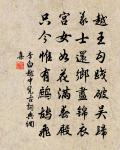 越王勾踐破吳歸
義士還鄉盡錦衣
宮女如花滿春殿
只今惟有鷓鴣飛
李白越中覽古詞典網
集